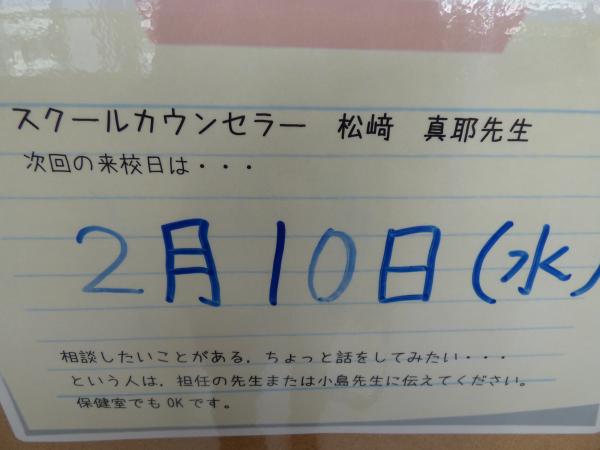 スクールカウンセラー　松﨑　真耶先生
次回の来校日は・・・
2月10日(水)
相談したいことがある，ちょっと話をしてみたい・・・
という人は，担任の先生または小島先生に伝えてください。
保健室でもOKです。